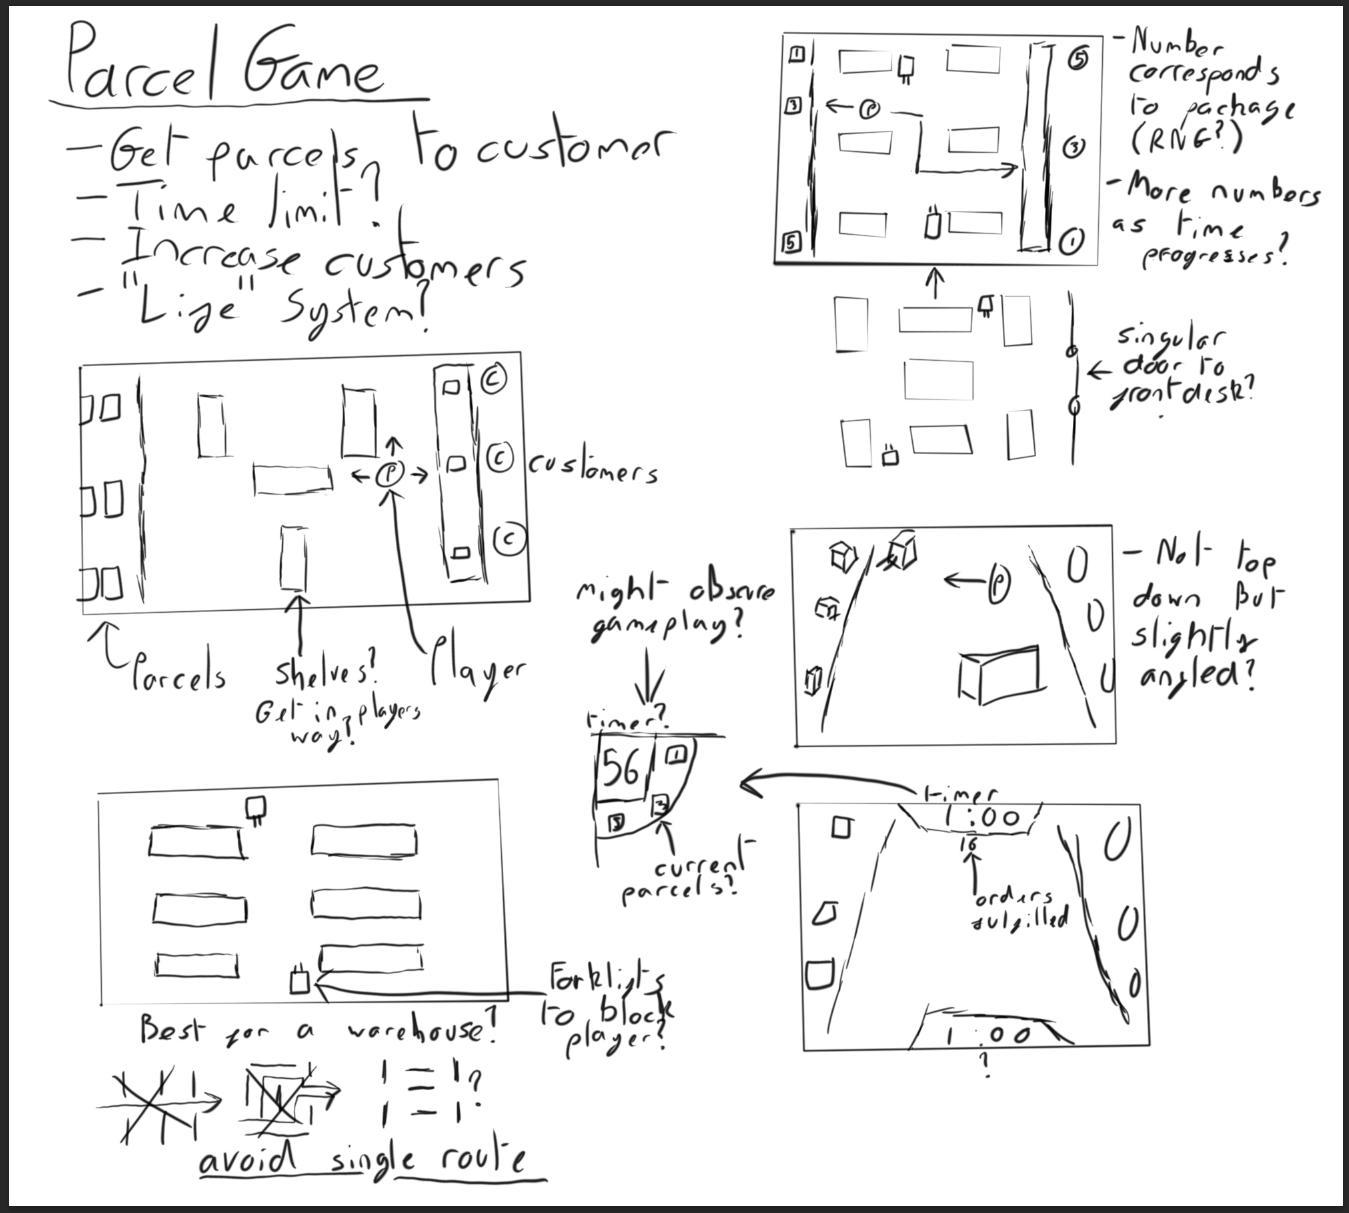 Parcel Game
- Get parcels to customer
- Time limit?
- Increase customers
- "Life" System?
C
C
C
customers
P
Parcels
Shelves?
Get in players
way?
Player
1
3
5
P
5
3
1
- Number
corresponds
to package
(RNG?)
- More numbers
as time
progresses?
singular
door to
front desk?
P
- Not top
down but
slightly
angled?
might obscure
gameplay?
timer?
56
1
3
5
current
parcels?
timer
1:00
16
orders
fulfilled
1:00
?
Forklifts
to block
player?
Best for a warehouse?
?
avoid single route